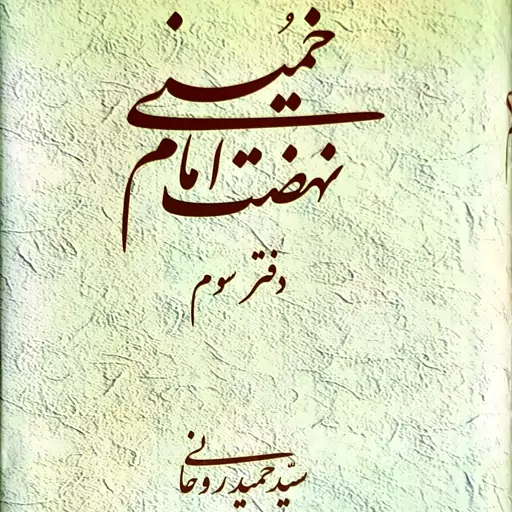 نهضت امام
خمینی
دفتر سوم
سید حمید روحانی